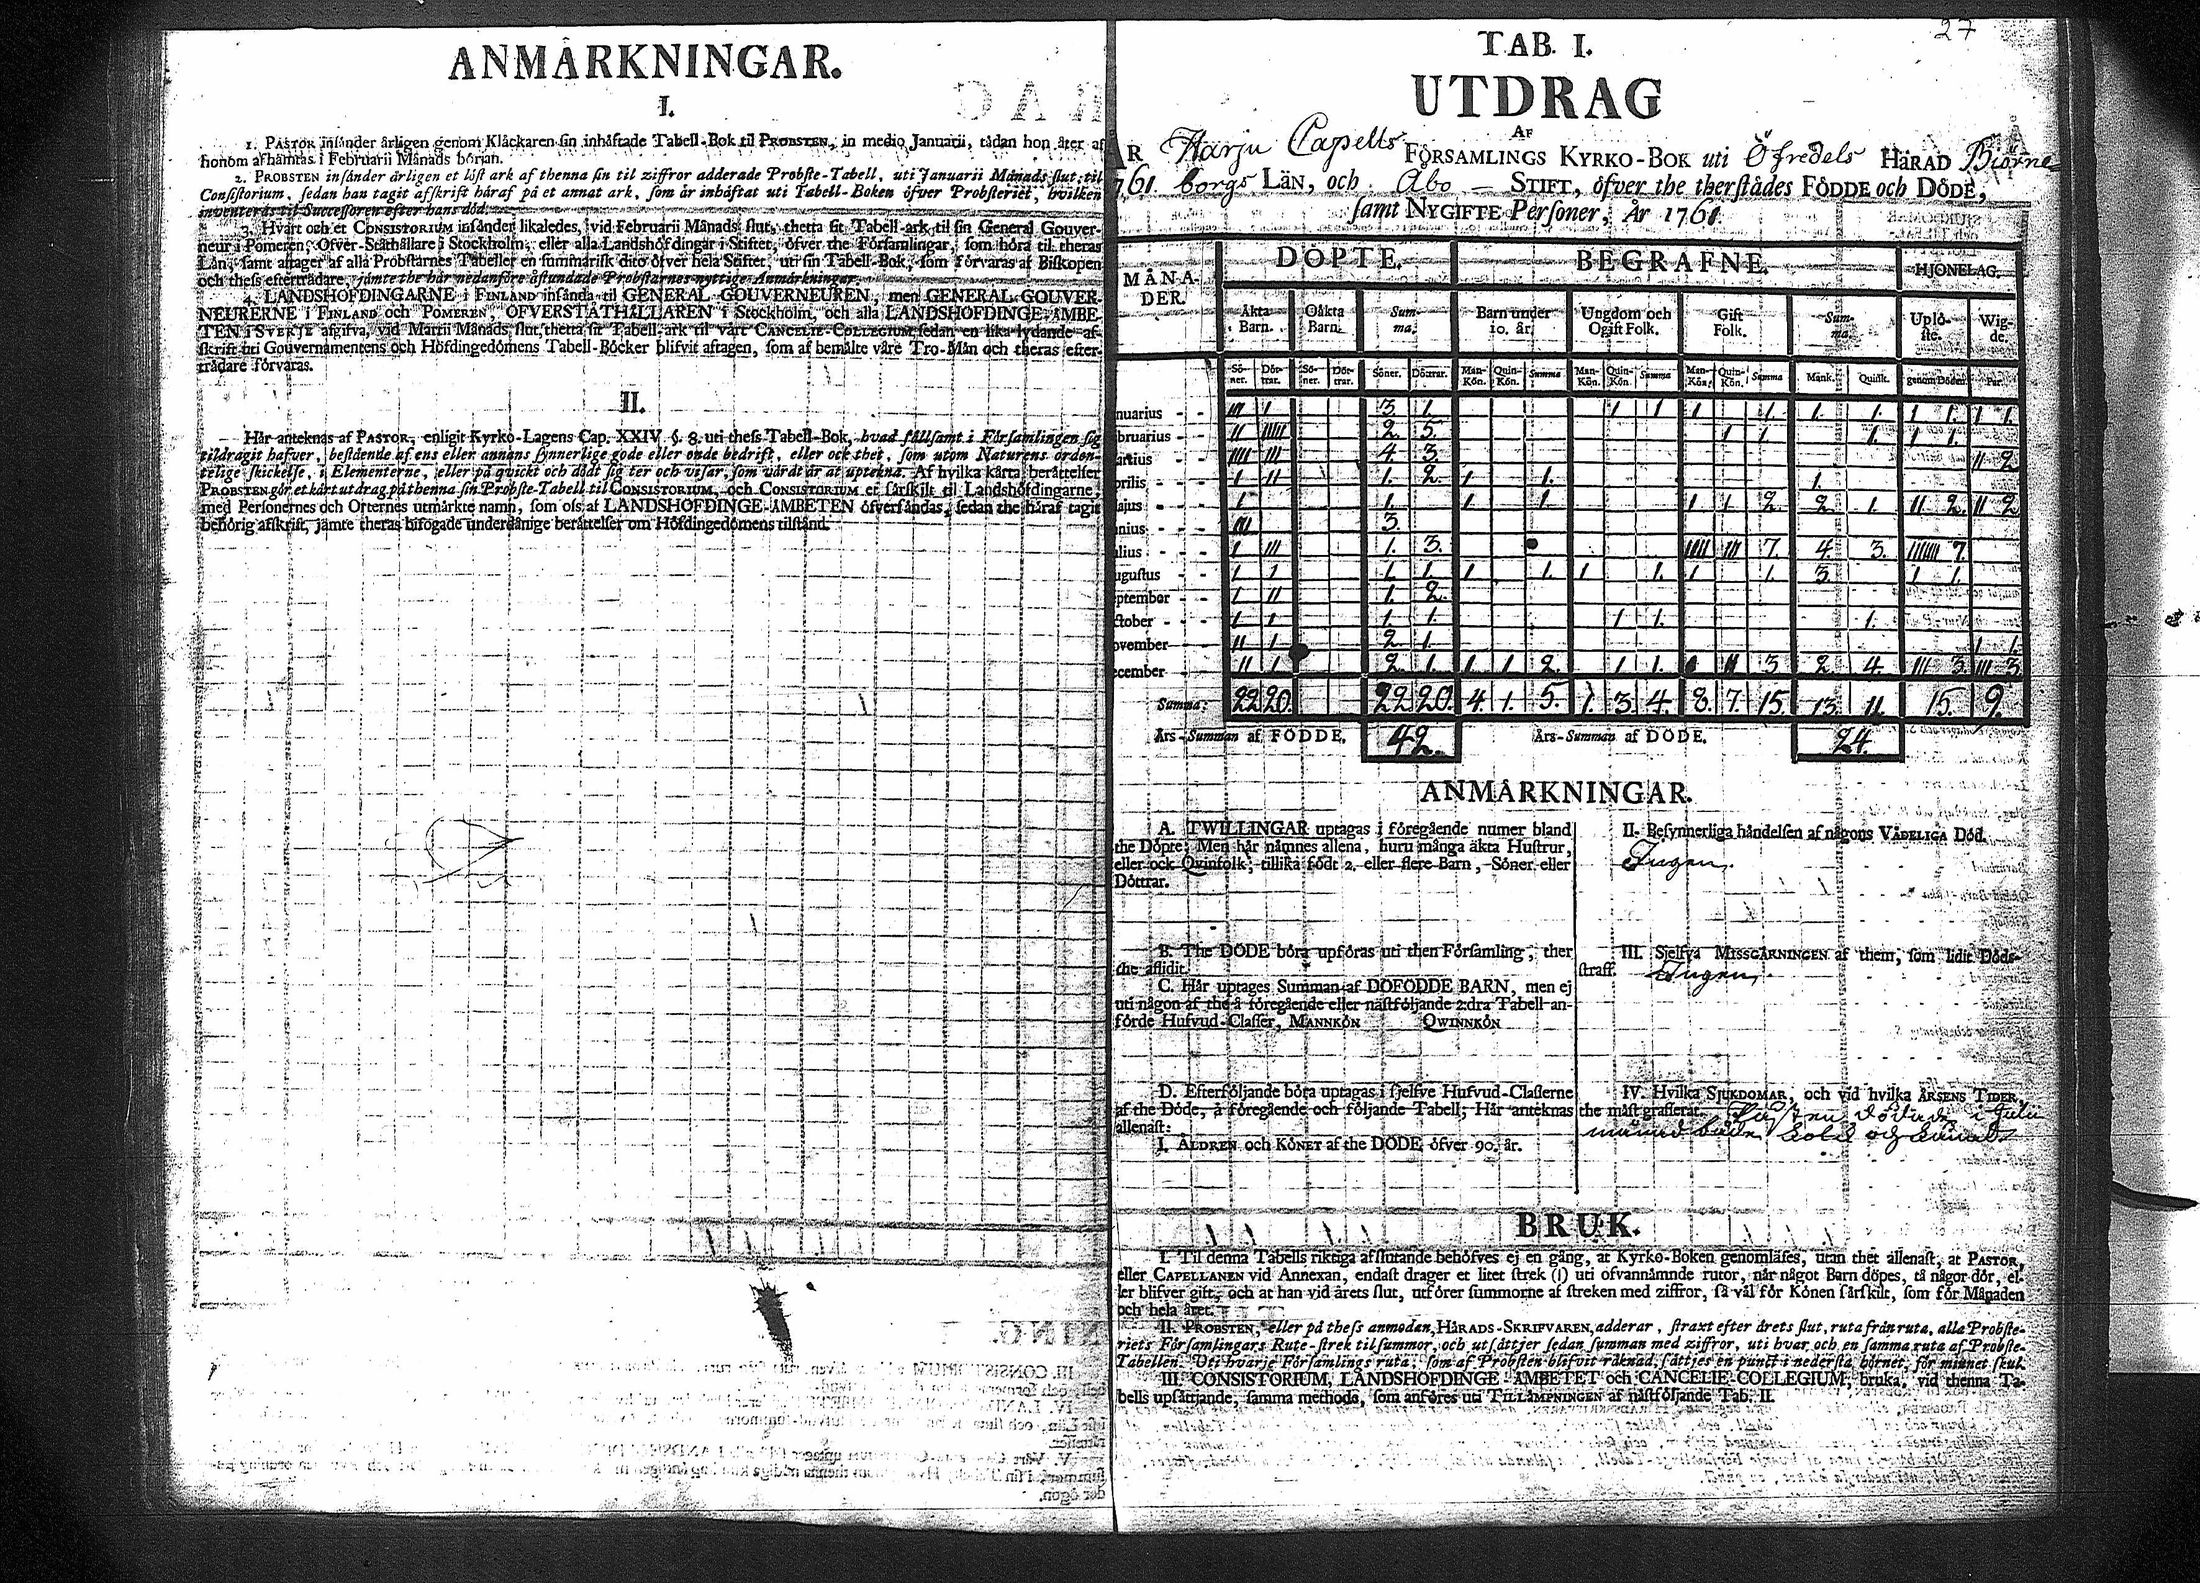 ANMÅRKNINGAR.
I.
1. PASTOR insånder årligen genom Klåckaren sin inhåftade Tabell-Bok til PROBSTEN, in medio Januarii, tådan hon åter af
honom afhåmtas i Februarii Månads början.
2. PROBSTEN insånder årligen et löst ark af thenna sin til ziffror adderade Probste-Tabell, uti Januarii Månads slut, til
Consistorium, sedan han tagit afskrift håraf på et annat ark, som år inhåftat uti Tabell-Boken öfver Probsteriet, hvilken
inventeras til Successoren efter hans död.
3. Hvart och et CONSISTORIUM insånder likaledes, vid Februarii Månads slut, thetta sit Tabell-ark til sin General Gouver-
neur i Pomeren, Öfver-Ståthållare i Stockholm, eller alla Landshöfdingar i Stiftet, öfver the Församlingar, som höra til theras
Lån, samt aftager af alla Probstarnes Tabeller en summarisk dito öfver hela Stiftet, uti sin Tabell-Bok, som förvaras af Biskopen
och thess eftertrådare, jåmte the hår nedanföre åstundade Probstarnes nyttige Anmårkningar.
4. LANDSHÖFDINGARNE i FINLAND insånda til GENERAL GOUVERNEUREN, men GENERAL GOUVER-
NEURERNE i FINLAND och POMEREN, ÖFVERSTÅTHÅLLAREN i Stockholm, och alla LANDSHÖFDINGE-ÅMBE-
TEN i SVERJE afgifva, vid Martii Månads slut, thetta sit Tabell-ark til vårt CANCELIE-COLLEGIUM, sedan en lika lydande af-
skrift uti Gouvernamentens och Höfdingedömens Tabell-Böcker blifvit aftagen, som af bemålte våre Tro-Mån och theras efter-
trådare förvaras.
II.
Hår anteknas af PASTOR, enligit Kyrko-Lagens Cap. XXIV. §. 8. uti thess Tabell-Bok, hvad sållsamt i Församlingen sig
tildragit hafver, bestående af ens eller annans synnerlige gode eller onde bedrift, eller ock thet, som utom Naturens orden-
telige skickelse, i Elementerne, eller på quickt och dödt sig ter och visar, som vårdt år at uptekna. Af hvilka kårta beråttelser
PROBSTEN gör et kårt utdrag på thenna sin Probste-Tabell til CONSISTORIUM, och CONSISTORIUM et sårskilt til Landshöfdingarne,
med Personernes och Orternes utmårkte namn, som oss af LANDSHÖFDINGE-ÅMBETEN öfversåndas, sedan the håraf tagit
behörig afskrift, jåmte theras bifogade underdånige beråttelser om Höfdingedömens tilstånd.
27
TAB. I.
UTDRAG
AF
ÅR Harju Capells FÖRSAMLINGS KYRKO-BOK uti Öfredels HÅRAD Biörne
1761. borgs LÅN, och Åbo STIFT, öfver the therstådes FÖDDE och DÖDE,
samt NYGIFTE Personer, År 1761.
MÅNA-DER. DÖPTE. BEGRAFNE. HJONELAG.
Åkta Barn. Oåkta Barn. Sum-ma. Barn under 10. år. Ungdom och Ogift Folk. Gift Folk. Sum-ma. Uplö-ste. Wig-de.
Sö-ner. Döt-trar. Sö-ner. Döt-trar. Söner. Döttrar. Man-Kön. Quin-Kön. Summa Man-Kön. Quin-Kön. Summa Man-Kön. Quin-Kön. Summa Mank. Quink. genom Döden Par.
nuarius - - III I 3. 1. I 1 I 1. 1. 1. I 1. I 1.
bruarius - - II IIIII 2. 5. I 1 1. I 1.
artius - - IIII III 4. 3. II 2
prilis - - I II 1. 2. I 1. 1.
ajus - - I 1. I 1 I I 2. 2. 1. II 2. II 2
nius - - III 3.
ulius - - I III 1. 3. IIII III 7. 4. 3. IIIIIII 7.
ugustus - - I I 1. 1. I 1. I 1. I 1. 3. I 1.
eptember - - I II 1. 2.
ctober - - I I 1. 1. I 1. 1.
ovember II I 2 1. I 1.
ecember - II I 2. 1. I I 2. I 1. 3 2. 4. III 3. III 3.
Summa: 22 20. 22 20. 4. 1. 5. 1. 3. 4. 8. 7. 15. 13. 11. 15. 9.
Års-Summan af FÖDDE. 42. Års-Summan af DÖDE. 24.
ANMÅRKNINGAR.
A. TWILLINGAR uptagas i föregående numer bland
the Döpte; Men hår nåmnes allena, huru många åkta Hustrur,
eller ock Qvinfolk, tillika födt 2. eller flere Barn, Söner eller
Döttrar.
B. The DÖDE böra upföras uti then Församling, ther
the aflidit.
C. Hår uptages Summan af DÖFÖDDE BARN, men ej
uti någon af the å föregående eller nåstföljande 2:dra Tabell an-
förde Hufvud-Classer, MANNKÖN QWINNKÖN
D. Efterföljande böra uptagas i sjelfve Hufvud-Classerne
af the Döde, å föregående och följande Tabell; Hår anteknas
allenast:
I. ÅLDREN och KÖNET af the DÖDE öfver 90. år.
II. Besynnerliga håndelsen af någons VÅDELIGA Död.
Ingen.
III. Sjelfva MISSGÅRNINGEN af them, som lidit Döds-
straff. Ingen.
IV. Hvilka SJUKDOMAR, och vid hvilka ÅRSENS TIDER,
the måst grasserat. i Julii
månad både och
BRUK.
I. Til denna Tabells riktiga afslutande behöfves ej en gång, at Kyrko-Boken genomlåses, utan thet allenast, at PASTOR,
eller CAPELLANEN vid Annexan, endast drager et litet strek (I) uti ofvannåmnde rutor, når något Barn döpes, tå någor dör, el-
ler blifver gift, och at han vid årets slut, utförer summorne af streken med ziffror, så vål för Könen sårskilt, som för Månaden
och hela året.
II. PROBSTEN, eller på thess anmodan, HÅRADS-SKRIFVAREN, adderar, straxt efter årets slut, ruta från ruta, alla Probste-
riets Församlingars Rute-strek til summor, och utsåttjer sedan summan med ziffror, uti hvar och en samma ruta af Probste-
Tabellen. Uti hvarje Församlings ruta, som af Probsten blifvit råknad, såttjes en punct i nedersta hörnet, för minnet skul.
III. CONSISTORIUM, LANDSHÖFDINGE-ÅMBETET och CANCELIE-COLLEGIUM, bruka, vid thenna Ta-
bells upsåttjande, samma methode, som anföres uti TILLÅMPNINGEN af nåstföljande Tab. II.